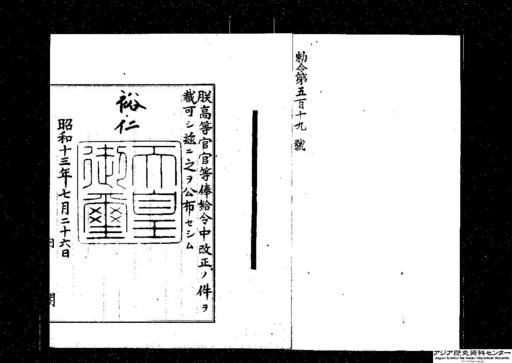 勅令第五百十九號
朕高等官官等俸給令中改正ノ件ヲ
裁可シ茲ニ之ヲ公布セシム
裕仁
天皇
御璽
昭和十三年七月二十六日
内閣
アジア歴史資料センター
Japan Center for Asian Historical Records